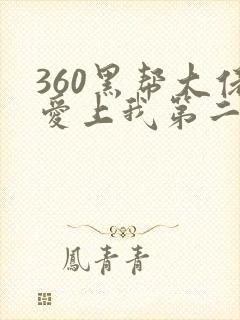 360黑帮大佬
爱上我第二
鳳青青